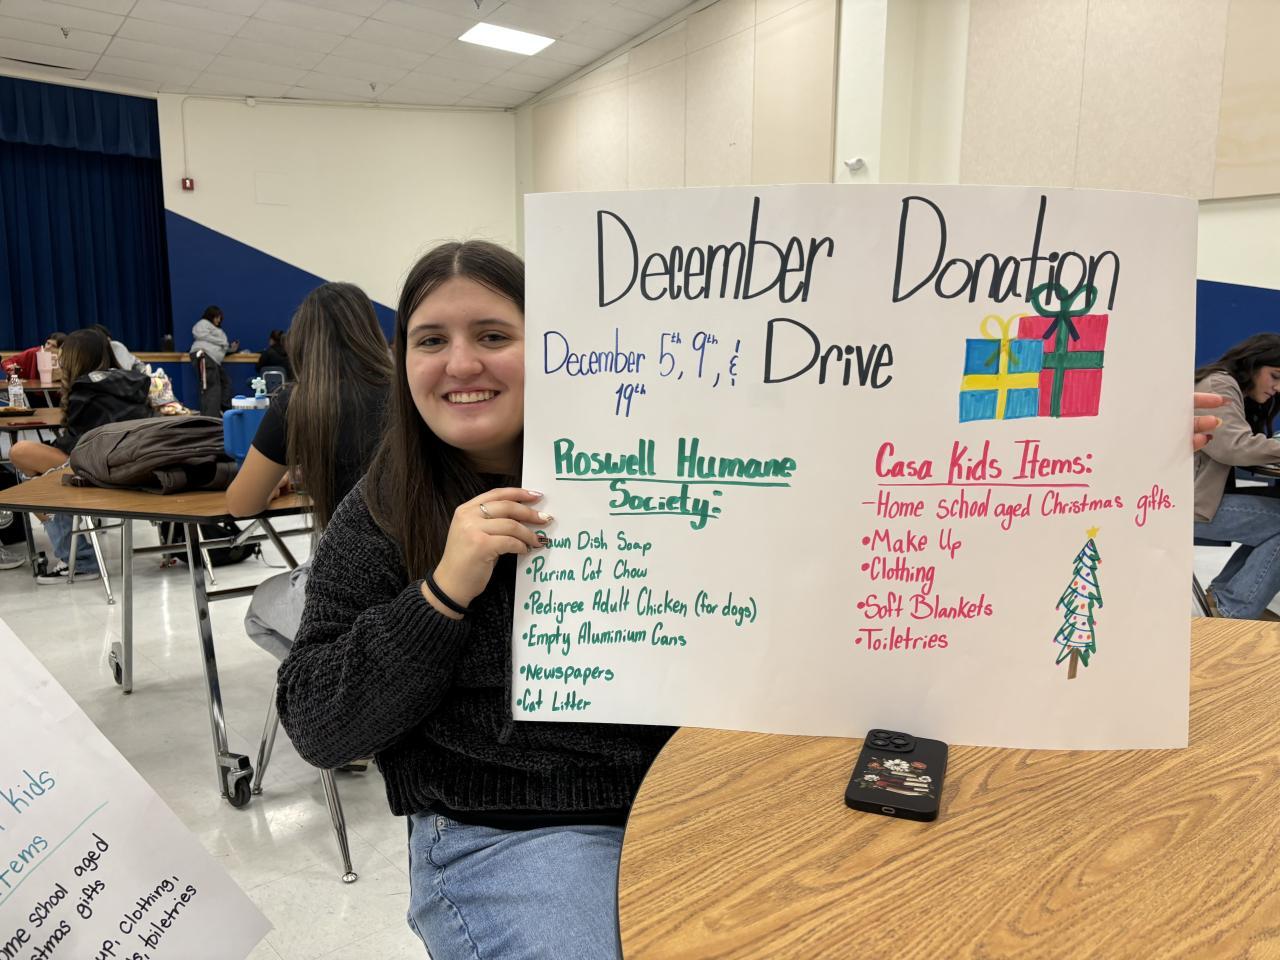 December Donation
December 5th, 9th, & Drive
19th
Roswell Humane
Society:
Dawn Dish Soap
•Purina Cat Chow
•Pedigree Adult Chicken (for dogs)
•Empty Aluminium Cans
•Newspapers
•Cat Litter
Casa Kids Items:
-Home school aged Christmas gifts.
•Make Up
•Clothing
•Soft Blankets
•Toiletries
kids
school aged
gifts
clothing,
toiletries